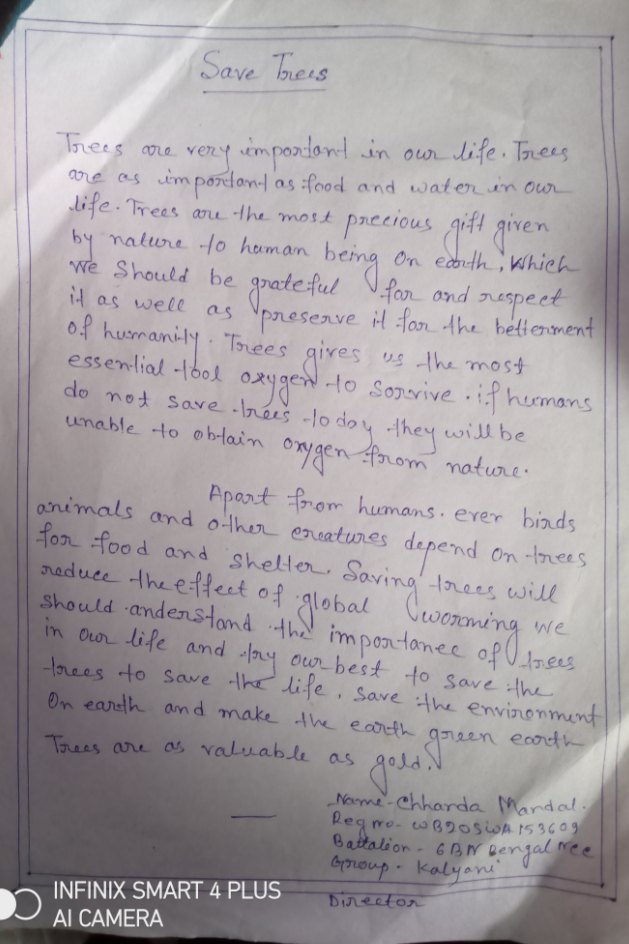 Save Trees
Trees are very important in our life. Trees
are as important as food and water in our
life. Trees are the most precious gift given
by nature to human being on earth, which
we should be grateful for and respect
it as well as preserve it for the betterment
of humanity. Trees gives us the most
essential tool oxygen to sorvive. if humans
do not save trees today they will be
unable to obtain oxygen from nature.
Apart from humans. ever birds
animals and other creatures depend on trees
for food and shelter. Saving trees will
reduce the effect of global worming we
should anderstand the importance of trees
in our life and try our best to save the
trees to save the life, save the environment
On earth and make the earth green earth
Trees are as valuable as gold.
Name- Chharda Mandal.
Reg no- WB20SWA153609
Battalion - 6BN Bengal Ncc
Group - Kalyani
Director
INFINIX SMART 4 PLUS
AI CAMERA